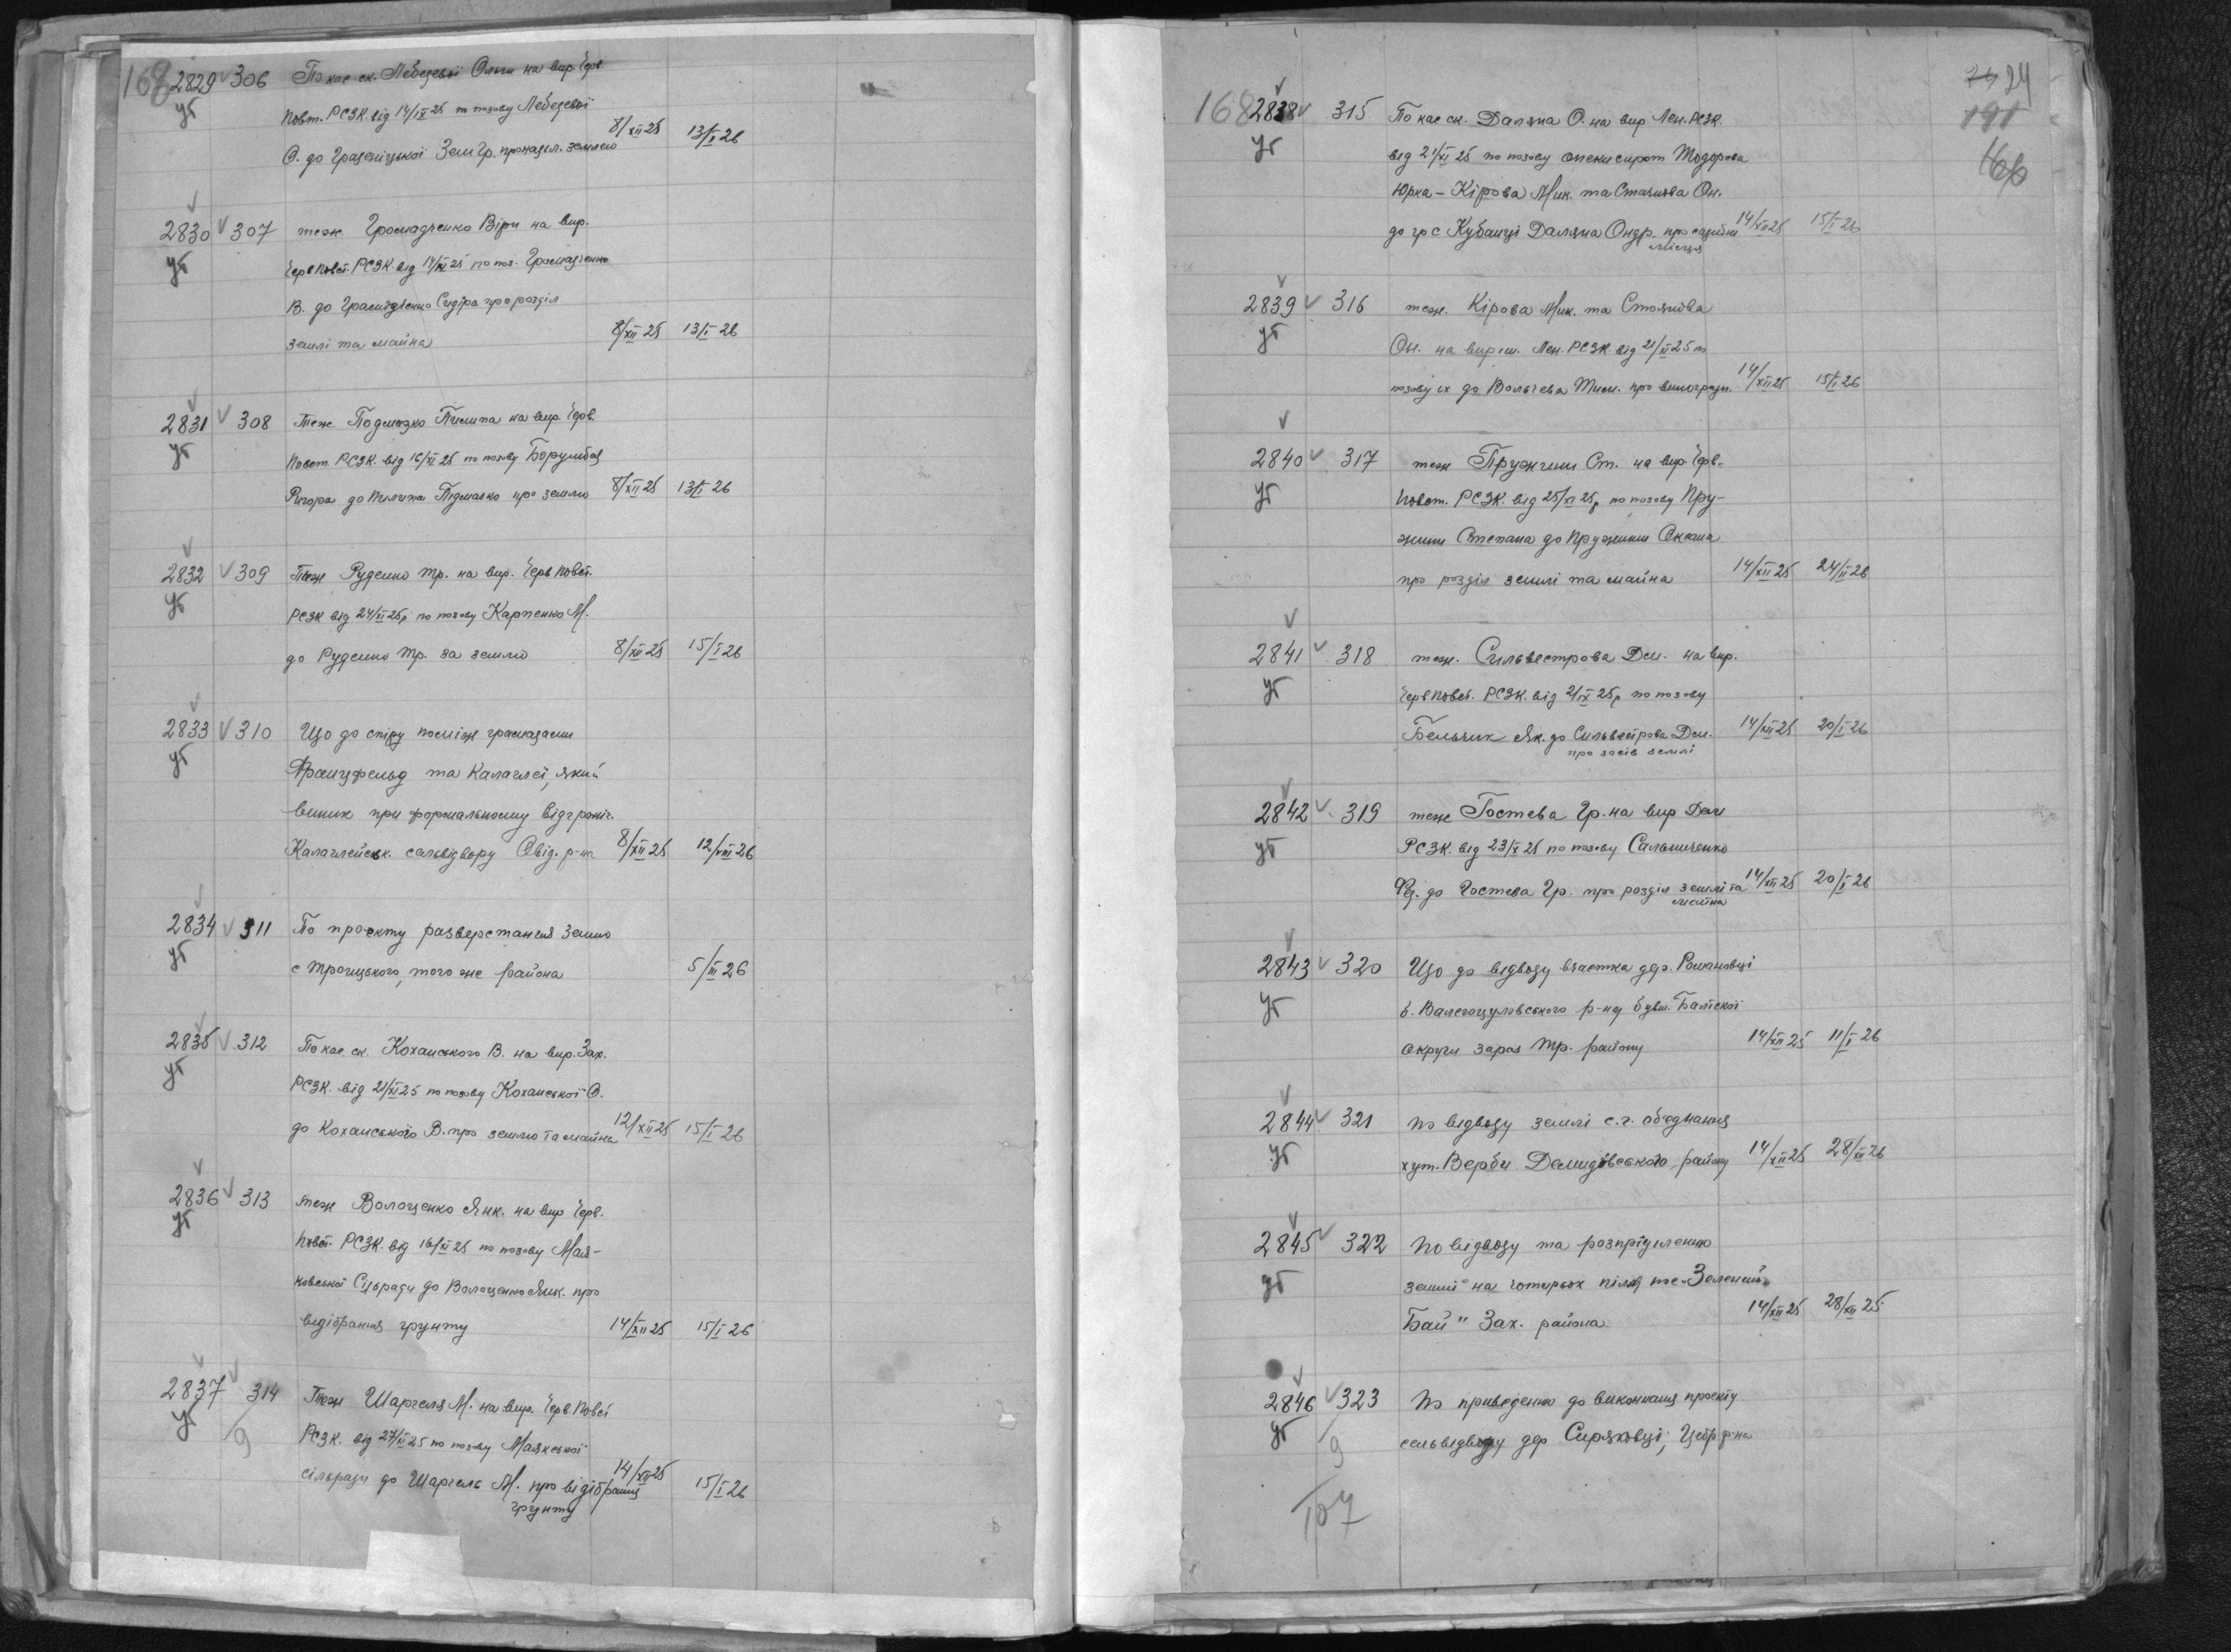 168 2829 306 По кас. ск. Лебедевої Ольги на вир. Черв.
Повт. РСЗК. від 14/IX 25 по позову Лебедевої
О. до Граденіцької Зем Гр. про наділ. землею 8/XII 25 13/I 26
2830 307 теж Громадченко Віри на вир.
Черв Повст. РСЗК від 14/XI 25 по поз. Громадченко
В. до Громадченко Сидіра про розділ
землі та майна 8/XII 25 13/I 26
2831 308 Теж Подмазко Пилипа на вир. Черв.
Повст. РСЗК. від 16/XI 25 по позову Борумбая
Ригора до Пилипа Підмазко про землю 8/XII 25 13/I 26
2832 309 Теж Руденко Тр. на вир. Черв Повст.
РСЗК від 24/XI 25р по позову Карпенко М.
до Руденко Тр. за землю 8/XII 25 15/I 26
2833 310 Що до спіру поміж громадами
Францфельд та Калаглеї, який
виник при формальному відграніч.
Калаглейськ. сельвідвору Овід. р-ну 8/XII 25 12/VIII 26
2834 311 По проекту разверстання землю
с Троицького, того же района 5/III 26
2835 312 По кас. ск. Коханського В. на вир. Зах.
РСЗК. від 21/XI 25 по позову Коханської О.
до Коханського В. про землю та майна 12/XII 25 15/I 26
2836 313 теж Волощенко Янк. на вир Черв.
Повст. РСЗК. від 16/XI 25 по позову Мая-
ковської Сільради до Волощенко Янк. про
відібрання грунту 14/XII 25 15/I 26
2837 314 Теж Шаргеля М. на вир. Черв. Повст
9 РСЗК. від 27/XI 25 по позову Маякської
сільради до Шаргель М. про відібрання 14/XII 25 15/I 26
грунту
24 24
191
166
168 2838 315 По кас ск. Даляна О. на вир Лен. РСЗК.
від 21/XI 25 по позову опеки сирот Тодорова
Юрка – Кірова Мик. та Стаянова Он.
до гр с Кубанці Даляна Ондр. про садибні 14/XII 25 15/I 26
місця
2839 316 теж. Кірова Мик. та Стоянова
Он. на виріш. Лен. РСЗК від 21/XI 25 по
позову іх до Вольчева Тим. про виноградн. 14/XII 25 15/I 26
2840 317 теж Пружини Ст. на вир. Черв.
Повст. РСЗК. від 25/XI 25р по позову Пру-
жини Степана до Пружини Оксана
про розділ землі та майна 14/XII 25 24/II 26
2841 318 теж. Сильвестрова Дем. на вир.
Черв Повст. РСЗК. від 2/IX 25р по позову
Бельчик Як. до Сильвестрова Дем. 14/XII 25 20/I 26
про засів землі
2842 319 теж Гостева Гр. на вир Дем
РСЗК. від 23/X 25 по позову Сальниченко
Фед. до Гостева Гр. про розділ землі та 14/XII 25 20/I 26
майна
2843 320 Що до відводу вчастка дер. Романовці
б. Валегоцуловського р-ну бувш. Балтської
округи зараз Тр. району 14/XII 25 11/I 26
2844 321 По відводу землі с.г. об'єднання
хут. Верби Демидовського району 14/XII 25 28/XII 26
2845 322 По відводу та розпріділенню
землі на чотирьох пілля тов. „Зеленый
Бай" Зах. района 14/XII 25 28/XII 25
2846 323 По приведенню до виконання проекту
9 сельвідводу дер Сиряковці, Цебр р-на
107